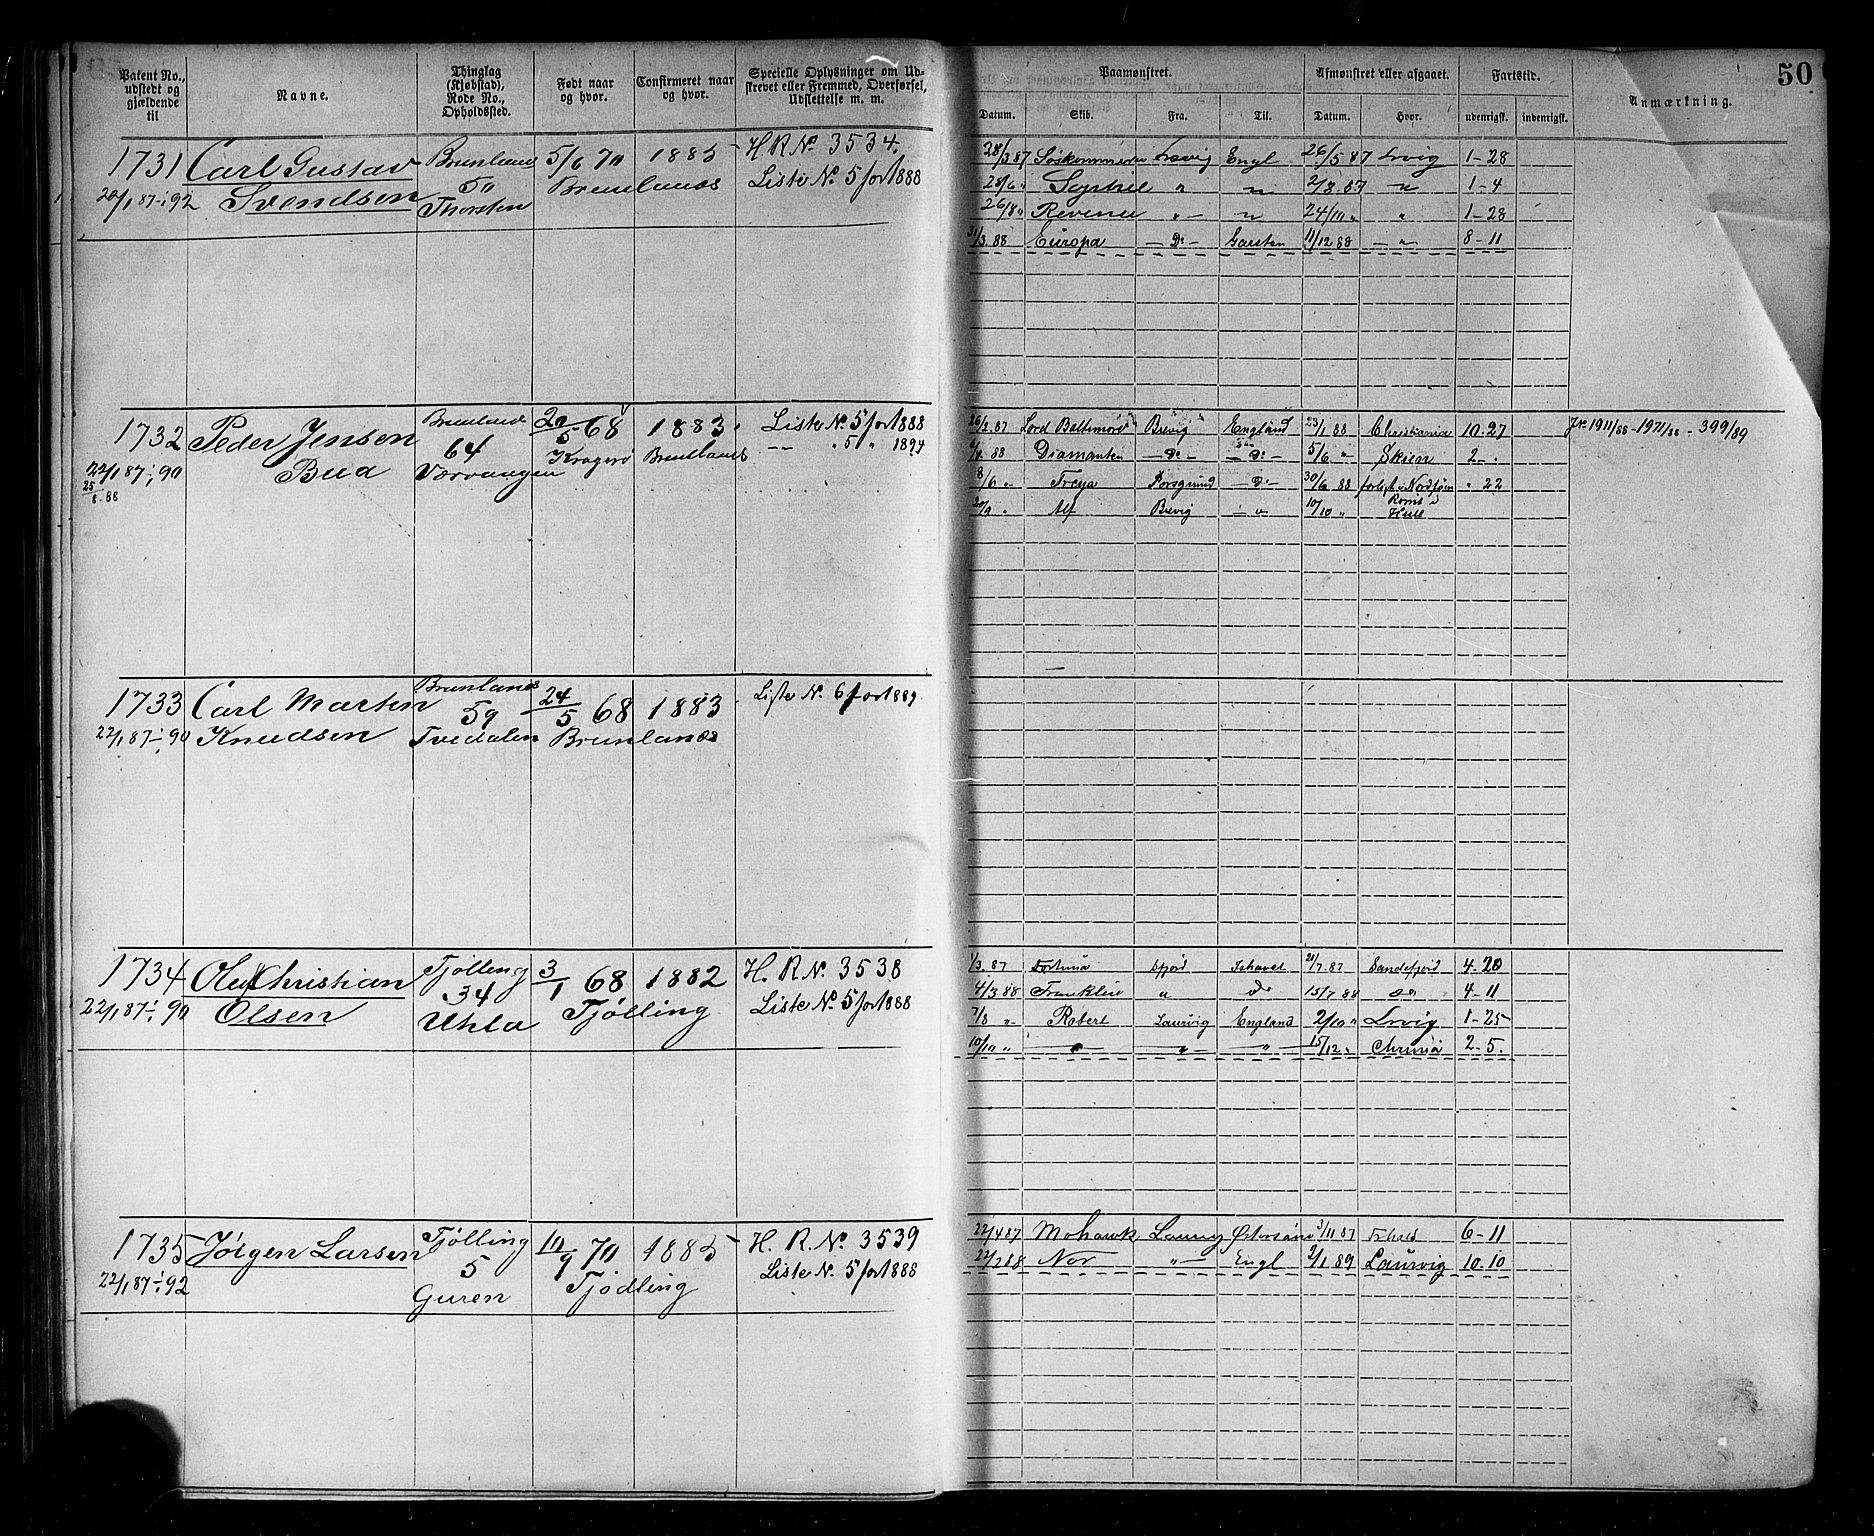 50
Patent No., udstedt og gjældende til
Navne.
Thinglag (Kjøbstad), Rode No., Opholdssted.
Født naar og hvor.
Confirmeret naar og hvor.
Specielle Oplysninger om Udskrevet eller Fremmed, Overførsel, Udslettelse m. m.
Paamønstret.
Afmønstret eller afgaaet.
Fartstid.
Anmærkning.
Datum. Skib. Fra. Til. Datum. Hvor. udenrigsk. indenrigsk.
1731 Carl Gustav Brunlanes 5/6 70 1885 H. R. No. 3534.
50 Brunlanes Liste No. 5 for 1888
20/1 87-1/1 92 Svendsen Thorsten
28/3 87 Lrvig Engl 26/5 87 Lrvig 1-28
28/6 " " " 2/8 87 " 1-4
26/8 " Revenue " " 24/10 " " 1-28
31/3. 88 Europa - Do - 11/12 88 - " - 8-11
1732 Peder Jensen Brunlanes 20/5 68 1883. Liste No. 5 for 1888
64 Kragerø Brunlanes -- " 5 " 1894
22/1 87-1/1 90 Bua
25/8.88
26/2.87 Lord Baltimore Brevig England 23/1 88 Christiania 10.27 Jr. 1911/88 - 1971/88 - 399/89
88 Diamanten - Do - - Do - 5/6 " Skien 2 - .
8/6 " Freya Porsgrund - Do - 30/6 88 " 22
20/9 " Alf Brevig - " 10/10 " Rømt i Hull
1733 Carl Marten Brunlanes 24/5 68 1883 Liste No. 6 for 1889
59
22/1 87-1/1 90 Knudsen Tvedalen Brunlanes
1734 Oluf Christian Tjølling 3/1 68 1882 H. R. No. 3538
34 Liste No. 5 for 1888
22/1 87-1/1 90 Olsen Uhla Tjølling
1/3. 87 Fortuna Sfjord Ishavet 21/7. 87 Sandefjord 4-20
4/3 88 Franklin " Do 15/7 88 Do 4-11
7/8 " Robert Laurvig England 2/10 " Lrvig 1-25
10/10 " - " - " - " - 15/12 " Chrania 2-5.
1735 Jørgen Larsen Tjølling 10/9 70 1885 H. R. No. 3539
5 Tjødling Liste No. 5 for 1888
22/1 87-1/1 92 Guren
22/4 87 Mohawk Laurvig 3/11 87 6-11
22/2 88 Nor " - Engl 2/1 89 Laurvig 10-10